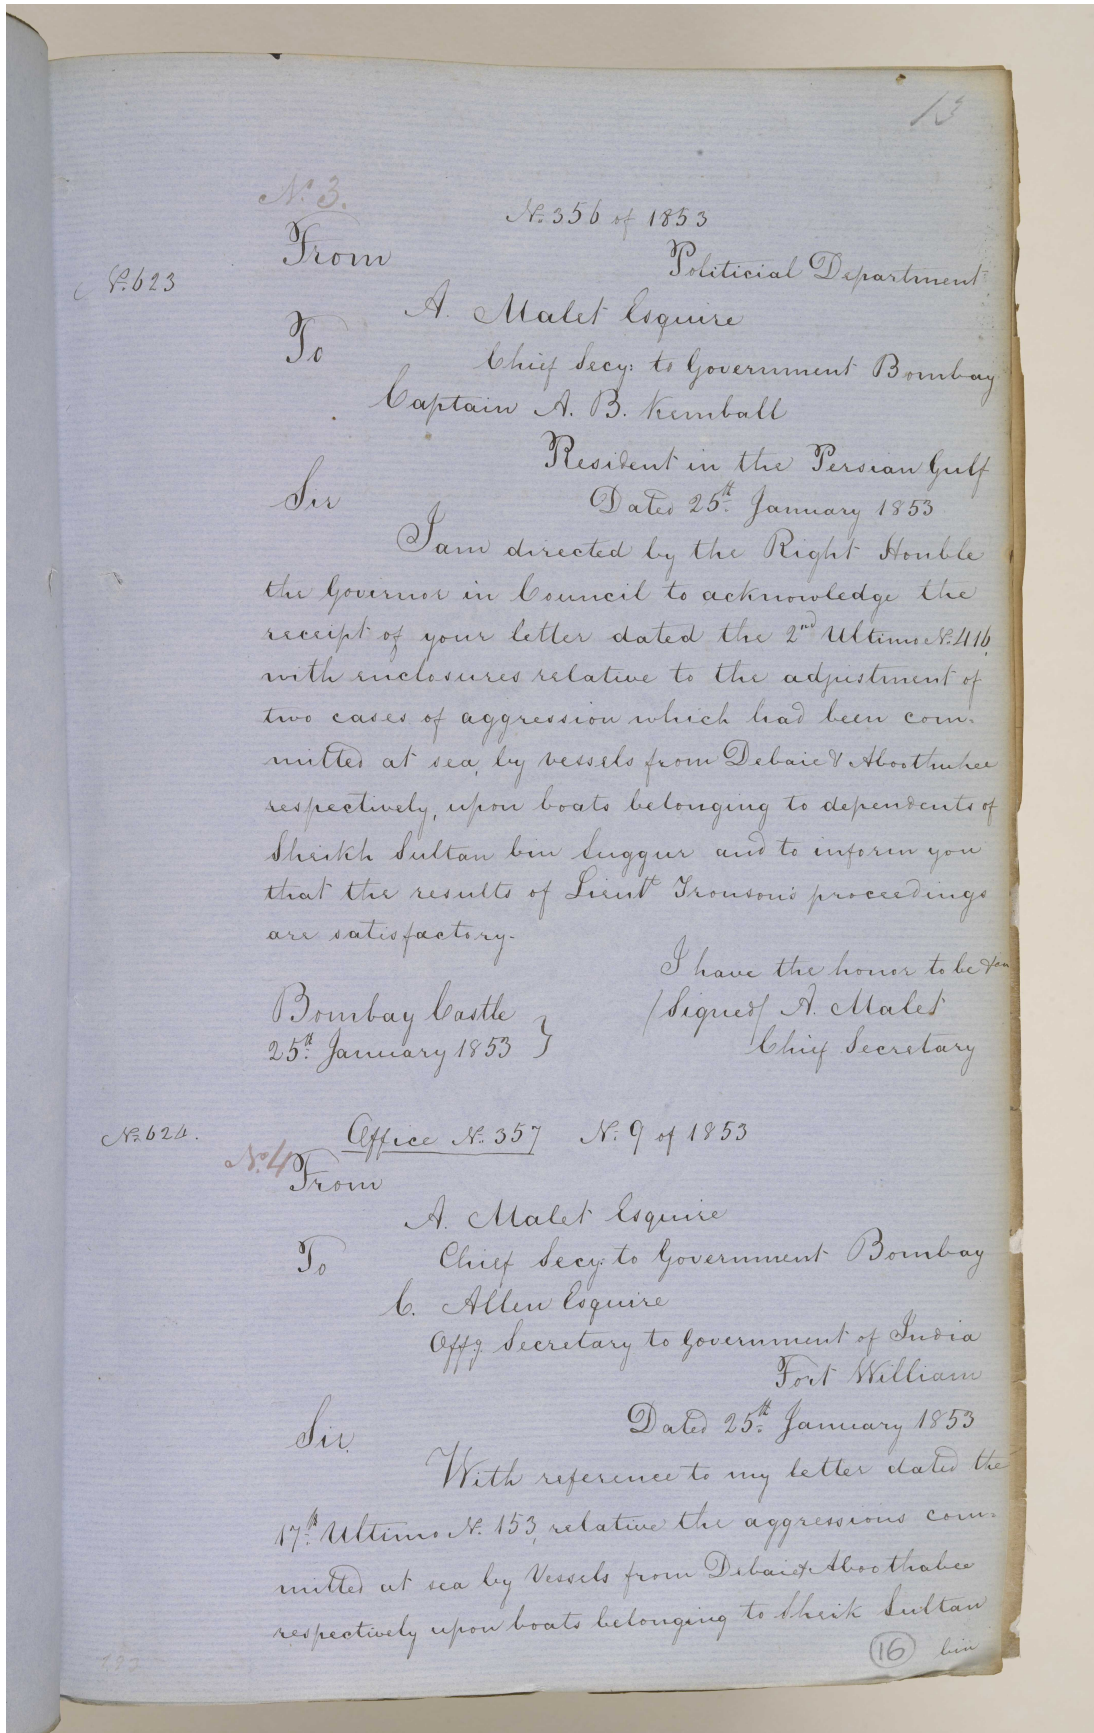 13
No. 3.
No. 356 of 1853
From
Politicial Department
No. 623
A. Malet Esquire
To
Chief Secy: to Government Bombay
Captain A. B. Kemball
Resident in the Persian Gulf
Sir
Dated 25th January 1853
I am directed by the Right Honble
the Governor in Council to acknowledge the
receipt of your letter dated the 2nd Ultimo No. 416,
with enclosures relative to the adjustment of
two cases of aggression which had been com-
mitted at sea, by vessels from Debaie & Aboothubee
respectively, upon boats belonging to dependents of
Sheikh Sultan bin Suggur and to inform you
that the results of Lieutt Tronson's proceedings
are satisfactory.
I have the honor to be &ca
Bombay Castle
(Signed) A. Malet
25th January 1853 }
Chief Secretary
No. 624.
Office No. 357 No. 9 of 1853
No. 4
From
A. Malet Esquire
To
Chief Secy: to Government Bombay
C. Allen Esquire
Offg Secretary to Government of India
Fort William
Dated 25th January 1853
Sir,
With reference to my letter dated the
17th Ultimo No. 153, relative the aggressions com-
mitted at sea by Vessels from Debaie & Aboothabee
respectively upon boats belonging to Sheik Sultan
16
bin